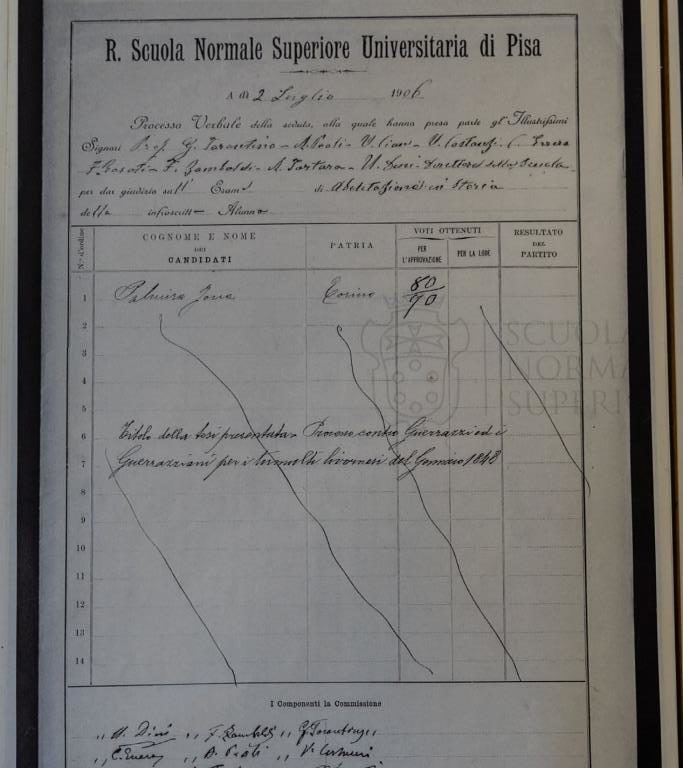 R. Scuola Normale Superiore Universitaria di Pisa
A dì 2 Luglio 1906
Processo Verbale della seduta, alla quale hanno preso parte gl' Illustrissimi
Signori Prof. G. Tarantino - A. Paoli - V. Cian - U. Costanzi
F. Rosati - F. Zambaldi - A. Tartara - U. Dini - Direttore della Scuola
per dar giudizio sull' Esame di Abilitazione in Storia
della infrascritt Alunn
N.° d'ordine
COGNOME E NOME
DEI
CANDIDATI
PATRIA
VOTI OTTENUTI
PER
L'APPROVAZIONE
PER LA LODE
RESULTATO
DEL
PARTITO
1 Palmira Jona Torino 80/70
2
3
4
5
6 Titolo della tesi presentata - Processo contro Guerrazzi ed i
7 Guerrazziani per i tumulti livornesi del Gennaio 1848
8
9
10
11
12
13
14
SCUOLA
NORMA
SUPERI
I Componenti la Commissione
U. Dini ,, F. Zambaldi ,, G. Tarantino
,, A. Paoli ,,